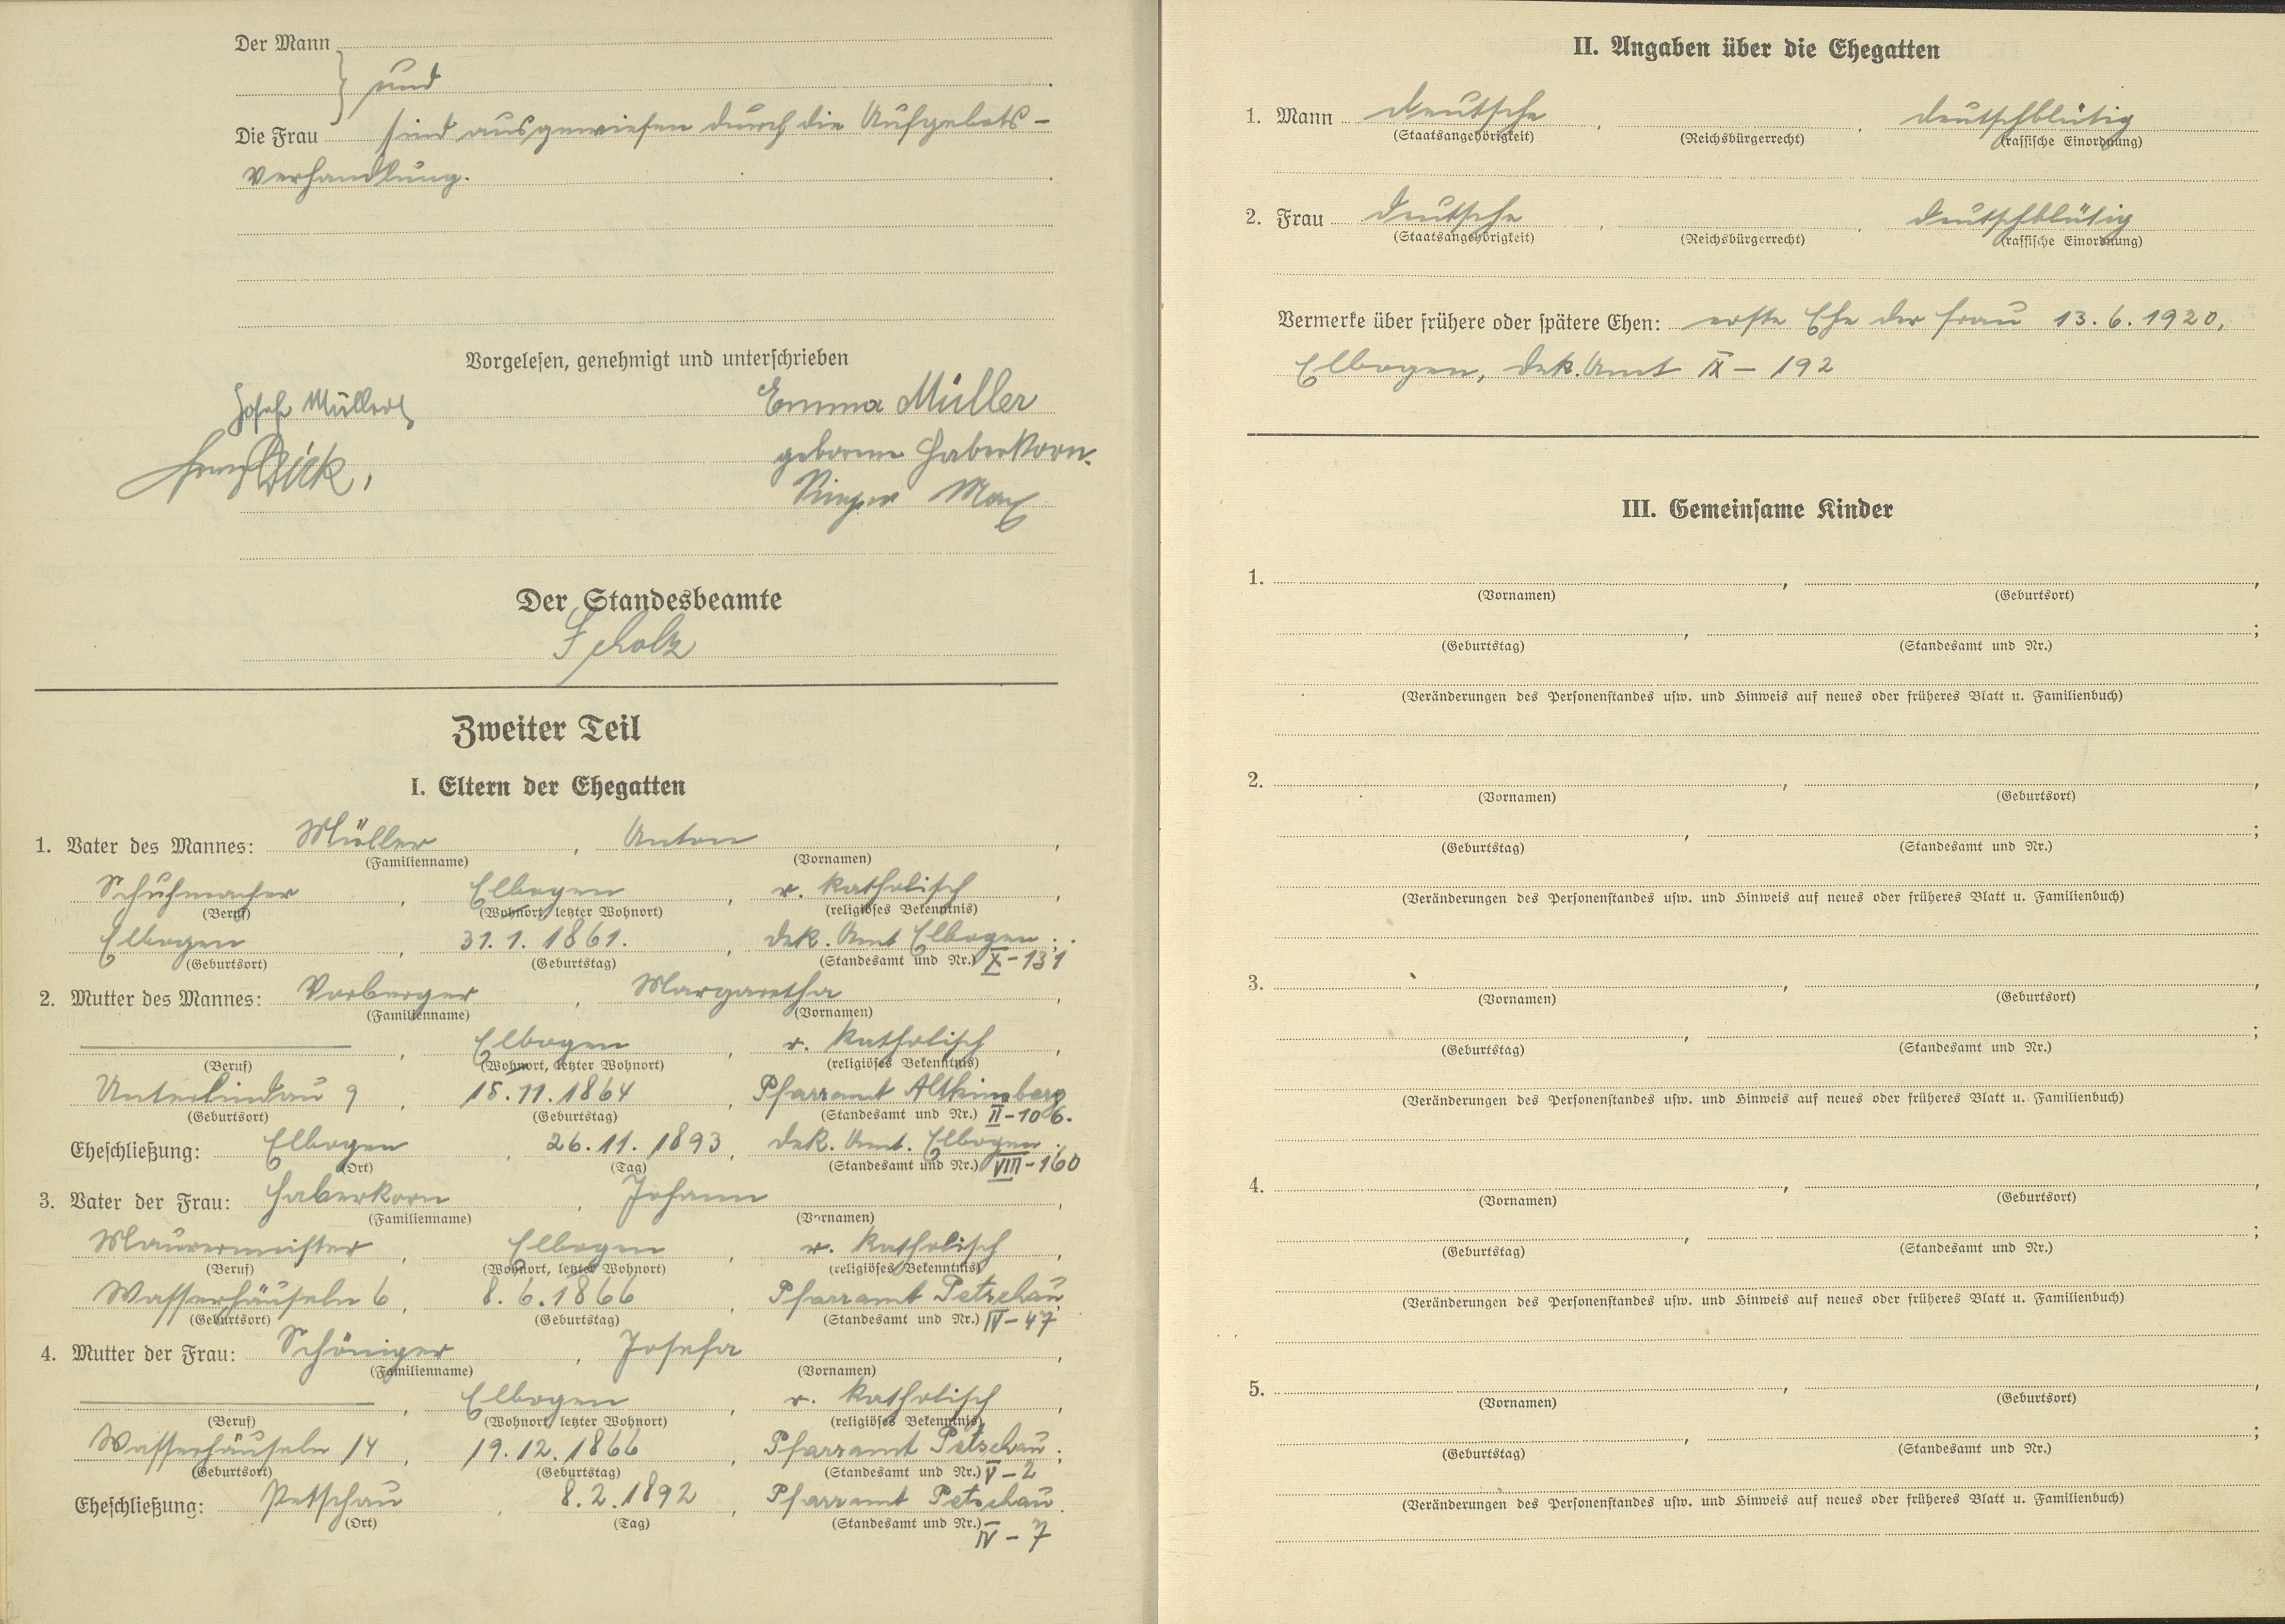 Der Mann
} und
Die Frau sind ausgewiesen durch die Aufgebots-
verhandlung.
Vorgelesen, genehmigt und unterschrieben
Josef Müller Emma Müller
geborene Haberkorn.
Franz Dick, Max
Der Standesbeamte
Scholz
Zweiter Teil
I. Eltern der Ehegatten
1. Vater des Mannes: Müller, Anton,
(Familienname) (Vornamen)
Schuhmacher, Elbogen, r. katholisch,
(Beruf) (Wohnort, letzter Wohnort) (religiöses Bekenntnis)
Elbogen, 31. 1. 1861., dek. Amt Elbogen;
(Geburtsort) (Geburtstag) (Standesamt und Nr.) X-131
2. Mutter des Mannes: Vorberger, Margaretha,
(Familienname) (Vornamen)
, Elbogen, r. katholisch,
(Beruf) (Wohnort, letzter Wohnort) (religiöses Bekenntnis)
Unterlindau 9, 15. 11. 1864, Pfarramt Altkinsberg
(Geburtsort) (Geburtstag) (Standesamt und Nr.) II-106.
Eheschließung: Elbogen, 26. 11. 1893, dek. Amt. Elbogen.
(Ort) (Tag) (Standesamt und Nr.) VIII-160
3. Vater der Frau: Haberkorn, Johann,
(Familienname) (Vornamen)
Maurermeister, Elbogen, r. katholisch,
(Beruf) (Wohnort, letzter Wohnort) (religiöses Bekenntnis)
Wasserhäuseln 6, 8. 6. 1866, Pfarramt Petschau;
(Geburtsort) (Geburtstag) (Standesamt und Nr.) IV-47
4. Mutter der Frau: Schöniger, Josefa,
(Familienname) (Vornamen)
, Elbogen, r. katholisch,
(Beruf) (Wohnort, letzter Wohnort) (religiöses Bekenntnis)
Wasserhäuseln 14, 19. 12. 1866, Pfarramt Petschau;
(Geburtsort) (Geburtstag) (Standesamt und Nr.) V-2
Eheschließung: Petschau, 8. 2. 1892, Pfarramt Petschau.
(Ort) (Tag) (Standesamt und Nr.)
IV-7
II. Angaben über die Ehegatten
1. Mann deutsche, , deutschblütig
(Staatsangehörigkeit) (Reichsbürgerrecht) (rassische Einordnung)
2. Frau deutsche, , deutschblütig
(Staatsangehörigkeit) (Reichsbürgerrecht) (rassische Einordnung)
Vermerke über frühere oder spätere Ehen: erste Ehe der Frau 13. 6. 1920,
Elbogen, dek. Amt IX-192
III. Gemeinsame Kinder
1. , ,
(Vornamen) (Geburtsort)
, ;
(Geburtstag) (Standesamt und Nr.)
(Veränderungen des Personenstandes usw. und Hinweis auf neues oder früheres Blatt u. Familienbuch)
2. , ,
(Vornamen) (Geburtsort)
, ;
(Geburtstag) (Standesamt und Nr.)
(Veränderungen des Personenstandes usw. und Hinweis auf neues oder früheres Blatt u. Familienbuch)
3. , ,
(Vornamen) (Geburtsort)
, ;
(Geburtstag) (Standesamt und Nr.)
(Veränderungen des Personenstandes usw. und Hinweis auf neues oder früheres Blatt u. Familienbuch)
4. , ,
(Vornamen) (Geburtsort)
, ;
(Geburtstag) (Standesamt und Nr.)
(Veränderungen des Personenstandes usw. und Hinweis auf neues oder früheres Blatt u. Familienbuch)
5. , ,
(Vornamen) (Geburtsort)
, ;
(Geburtstag) (Standesamt und Nr.)
(Veränderungen des Personenstandes usw. und Hinweis auf neues oder früheres Blatt u. Familienbuch)